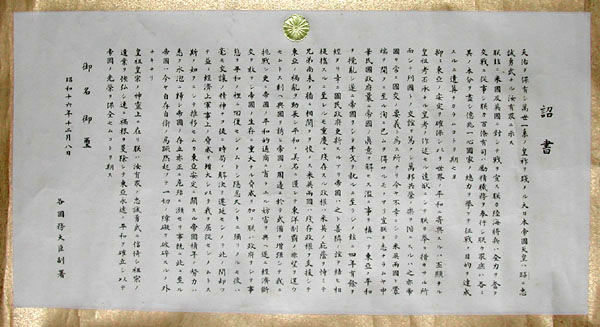 詔書
天佑ヲ保有シ萬世一系ノ皇祚ヲ踐メル大日本帝國天皇ハ昭ニ忠
誠勇武ナル汝有衆ニ示ス
朕茲ニ米國及英國ニ對シテ戰ヲ宣ス朕カ陸海將兵ハ全力ヲ奮テ
交戰ニ從事シ朕カ百僚有司ハ勵精職務ヲ奉行シ朕カ衆庶ハ各々
其ノ本分ヲ盡シ億兆一心國家ノ總力ヲ擧ケテ征戰ノ目的ヲ達成
スルニ遺算ナカラムコトヲ期セヨ
抑々東亞ノ安定ヲ確保シ以テ世界ノ平和ニ寄與スルハ丕顯ナル
皇祖考丕承ナル皇考ノ作述セル遠猷ニシテ朕カ拳々措カサル所
而シテ列國トノ交誼ヲ篤クシ萬邦共榮ノ樂ヲ偕ニスルハ之亦帝
國カ常ニ國交ノ要義ト爲ス所ナリ今ヤ不幸ニシテ米英兩國ト釁
端ヲ開クニ至ル洵ニ已ムヲ得サルモノアリ豈朕カ志ナラムヤ中
華民國政府曩ニ帝國ノ眞意ヲ解セス濫ニ事ヲ構ヘテ東亞ノ平和
ヲ攪亂シ遂ニ帝國ヲシテ干戈ヲ執ルニ至ラシメ茲ニ四年有餘ヲ
經タリ幸ニ國民政府更新スルアリ帝國ハ之ト善隣ノ誼ヲ結ヒ相
提携スルニ至レルモ重慶ニ殘存スル政權ハ米英ノ庇蔭ヲ恃ミテ
兄弟尚未タ牆ニ相鬩クヲ悛メス米英兩國ハ殘存政權ヲ支援シテ
東亞ノ禍亂ヲ助長シ平和ノ美名ニ匿レテ東洋制覇ノ非望ヲ逞ウ
セムトス剩ヘ與國ヲ誘ヒ帝國ノ周邊ニ於テ武備ヲ增強シテ我ニ
挑戰シ更ニ帝國ノ平和的通商ニ有ラユル妨害ヲ與ヘ遂ニ經濟斷
交ヲ敢テシ帝國ノ生存ニ重大ナル脅威ヲ加フ朕ハ政府ヲシテ事
態ヲ平和ノ裡ニ囘復セシメムトシ隱忍久シキニ彌リタルモ彼ハ
毫モ交讓ノ精神ナク徒ニ時局ノ解決ヲ遷延セシメテ此ノ間却ツ
テ益々經濟上軍事上ノ脅威ヲ增大シ以テ我ヲ屈從セシメムトス
斯ノ如クニシテ推移セムカ東亞安定ニ關スル帝國積年ノ努力ハ
悉ク水泡ニ歸シ帝國ノ存立亦正ニ危殆ニ瀕セリ事既ニ此ニ至ル
帝國ハ今ヤ自存自衞ノ爲蹶然起ツテ一切ノ障礙ヲ破碎スルノ外
ナキナリ
皇祖皇宗ノ神靈上ニ在リ朕ハ汝有衆ノ忠誠勇武ニ信倚シ祖宗ノ
遺業ヲ恢弘シ速ニ禍根ヲ芟除シテ東亞永遠ノ平和ヲ確立シ以テ
帝國ノ光榮ヲ保全セムコトヲ期ス
御名御璽
昭和十六年十二月八日
各國務大臣副署